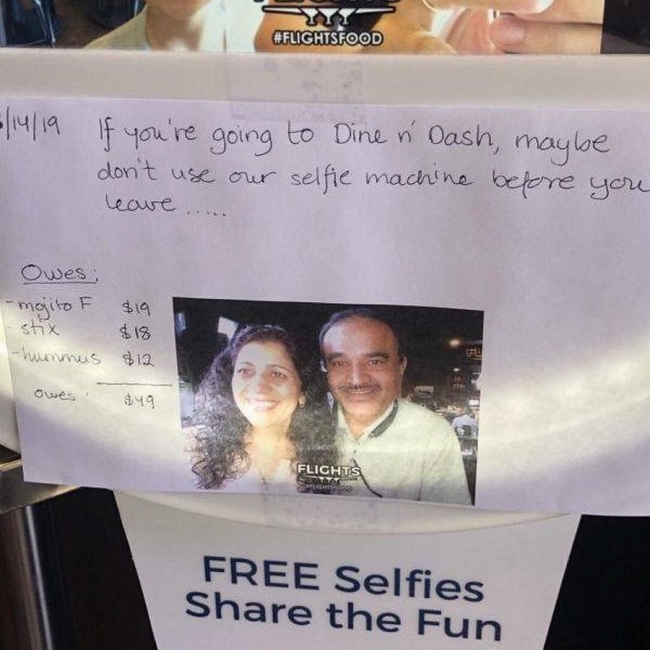 #FLIGHTSFOOD
/14/19
If you're going to Dine n' Dash, maybe
don't use our selfie machine before you
leave .....
Owes:
- mojito F $19
- stix $18
- hummus $12
owes: $49
FLIGHTS
#FLIGHTSFOOD
FREE Selfies
Share the Fun